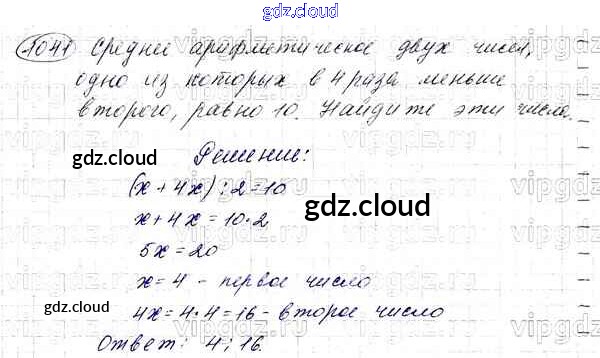 gdz.cloud
1041 Среднее арифметическое двух чисел,
одно из которых в 4 раза меньше
второго, равно 10. Найдите эти числа.
gdz.cloud
Решение:
(x + 4x) : 2 = 10
gdz.cloud
x + 4x = 10·2
5x = 20
x = 4 - первое число
gdz.cloud
4x = 4·4 = 16 - второе число
Ответ: 4; 16.
gdz.cloud